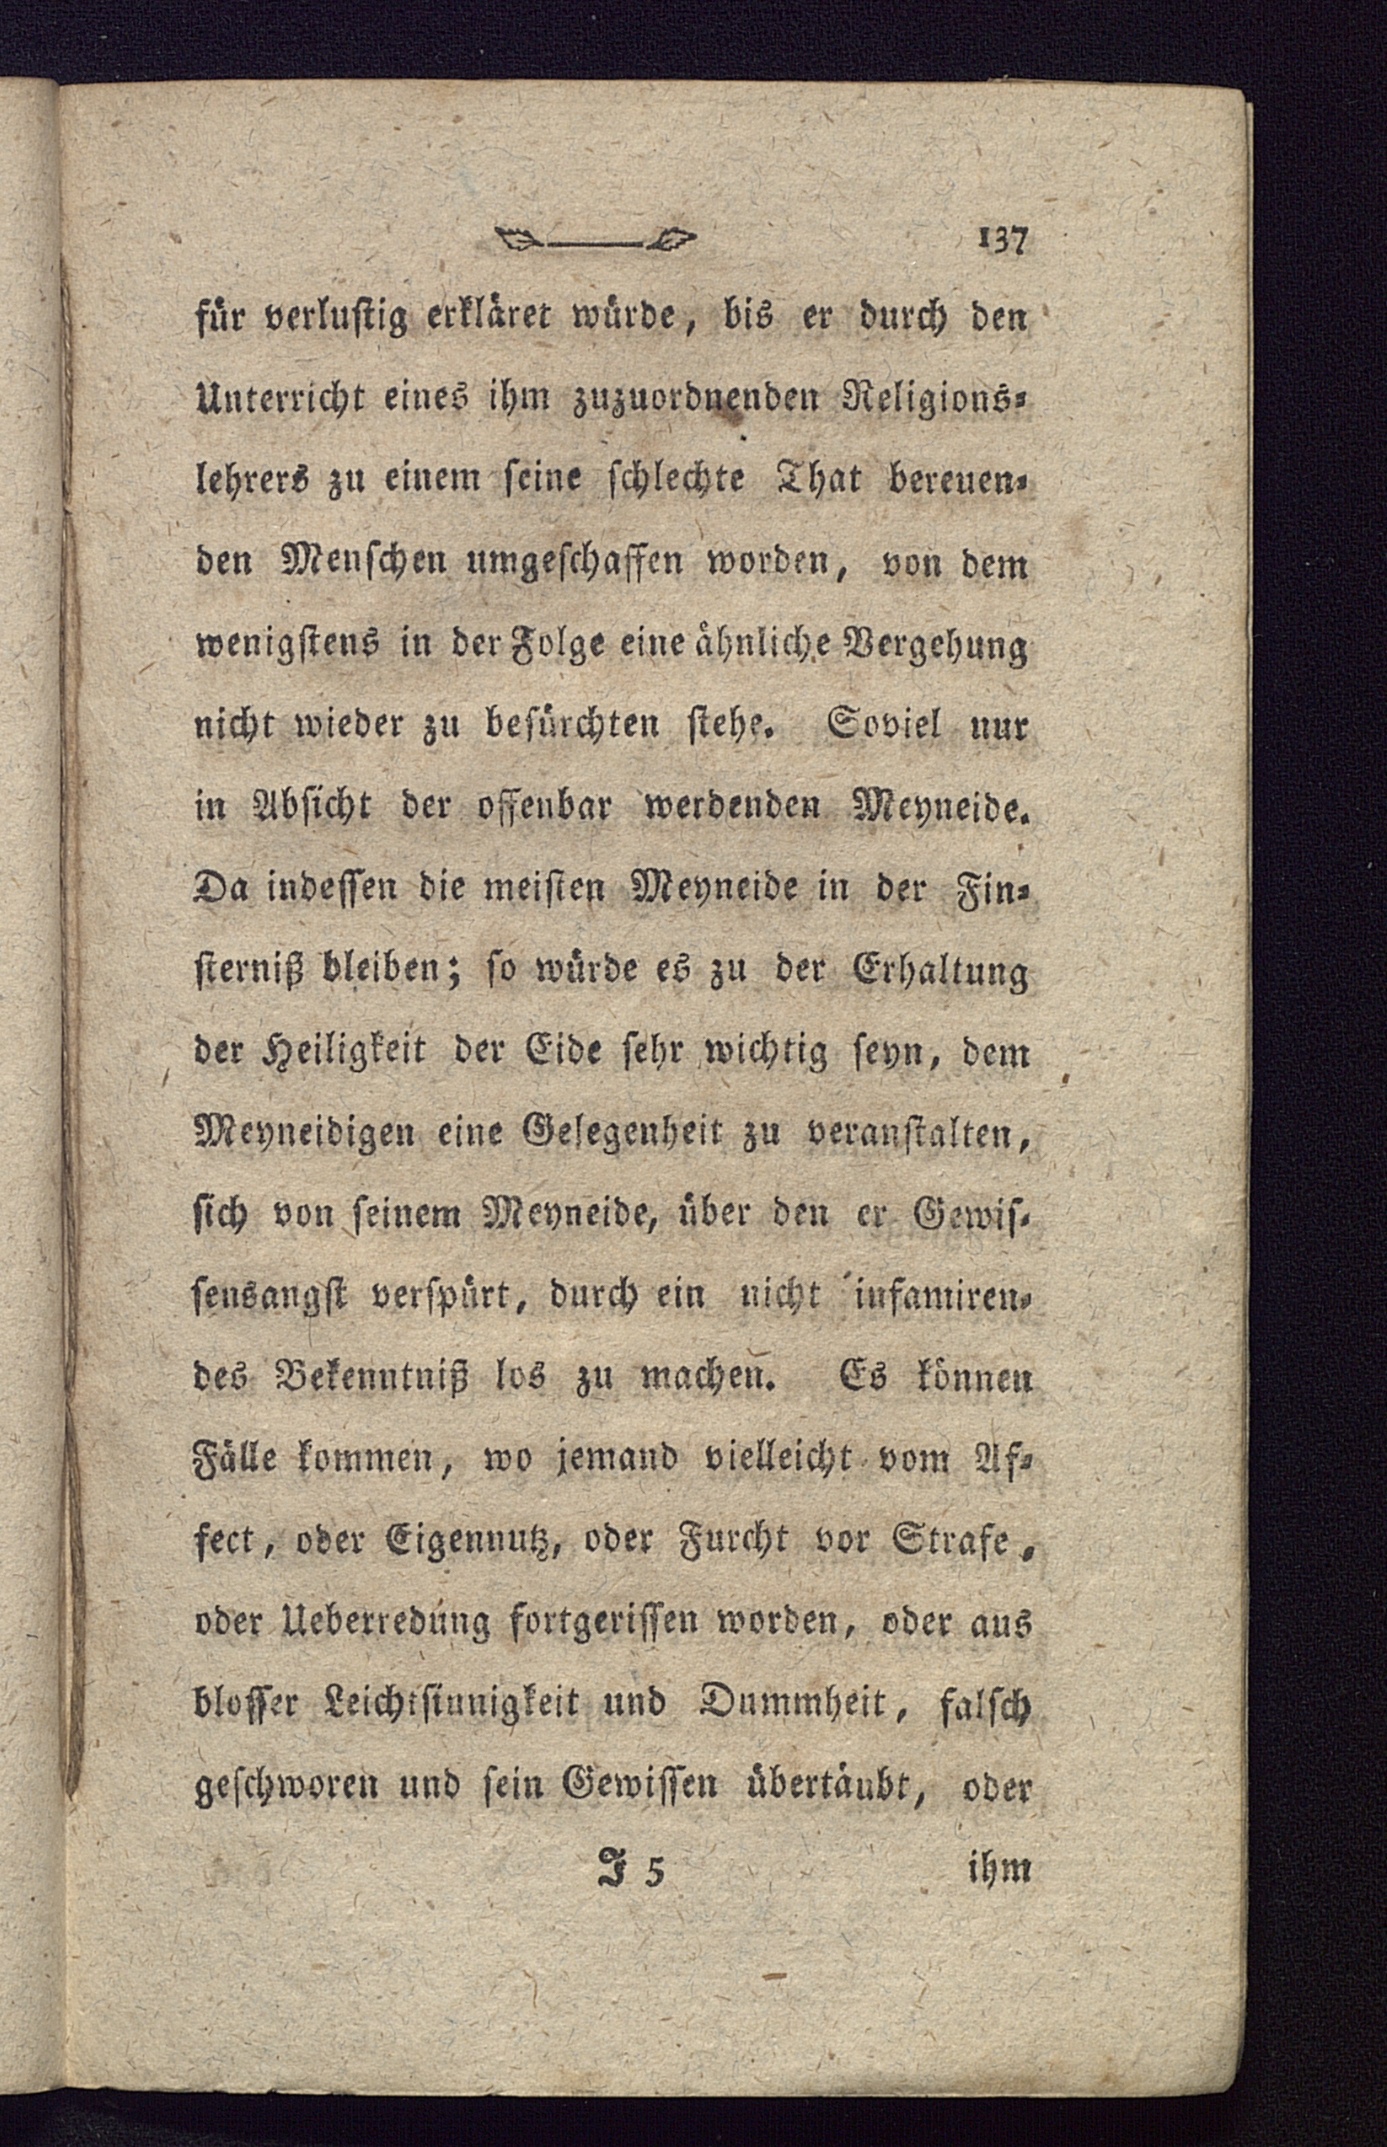 137
für verlustig erkläret würde, bis er durch den
Unterricht eines ihm zuzuordnenden Religions-
lehrers zu einem seine schlechte That bereuen-
den Menschen umgeschaffen worden, von dem
wenigstens in der Folge eine ähnliche Vergehung
nicht wieder zu befürchten stehe. Soviel nur
in Absicht der offenbar werdenden Meyneide.
Da indessen die meisten Meyneide in der Fin-
sterniß bleiben; so würde es zu der Erhaltung
der Heiligkeit der Eide sehr wichtig seyn, dem
Meyneidigen eine Gelegenheit zu veranstalten,
sich von seinem Meyneide, über den er Gewis-
sensangst verspürt, durch ein nicht infamiren-
des Bekenntniß los zu machen. Es können
Fälle kommen, wo jemand vielleicht vom Af-
fect, oder Eigennutz, oder Furcht vor Strafe,
oder Ueberredung fortgerissen worden, oder aus
blosser Leichtsinnigkeit und Dummheit, falsch
geschworen und sein Gewissen übertäubt, oder
J 5 ihm